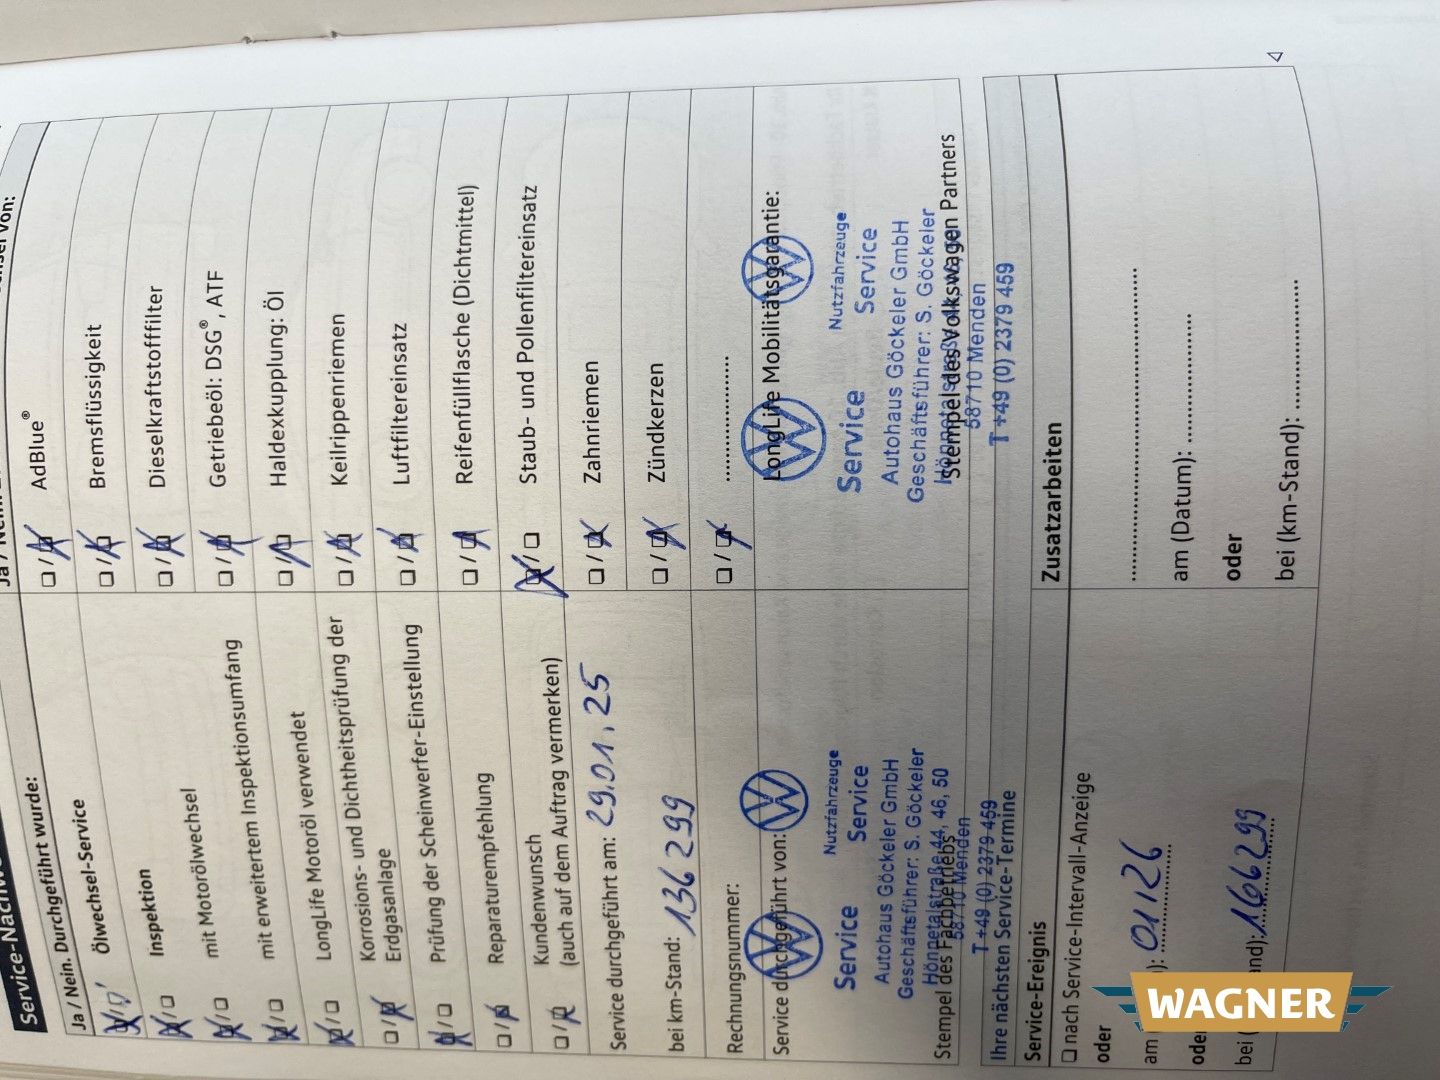 Service-Nachw
Durchgeführt wurde:
Ja / Nein.
Ölwechsel-Service
Inspektion
mit Motorölwechsel
mit erweitertem Inspektionsumfang
LongLife Motoröl verwendet
Korrosions- und Dichtheitsprüfung der
Erdgasanlage
Prüfung der Scheinwerfer-Einstellung
Reparaturempfehlung
Kundenwunsch
(auch auf dem Auftrag vermerken)
Service durchgeführt am: 29.01.25
bei km-Stand: 136299
Rechnungsnummer:
Service durchgeführt von:
Nutzfahrzeuge
Service Service
Autohaus Göckeler GmbH
Geschäftsführer: S. Göckeler
Hönnetalstraße 44, 46, 50
58710 Menden
Stempel des Fachbetriebs
T +49 (0) 2379 459
von:
AdBlue®
Bremsflüssigkeit
Dieselkraftstofffilter
Getriebeöl: DSG®, ATF
Haldexkupplung: Öl
Keilrippenriemen
Luftfiltereinsatz
Reifenfüllflasche (Dichtmittel)
Staub- und Pollenfiltereinsatz
Zahnriemen
Zündkerzen
....................
LongLife Mobilitätsgarantie:
Nutzfahrzeuge
Service Service
Autohaus Göckeler GmbH
Geschäftsführer: S. Göckeler
Stempel des Volkswagen Partners
58710 Menden
T +49 (0) 2379 459
Ihre nächsten Service-Termine
Service-Ereignis
nach Service-Intervall-Anzeige
oder
am ): 01/26
oder
bei ( and): 166299
Zusatzarbeiten
am (Datum): ....................
oder
bei (km-Stand): ....................
WAGNER